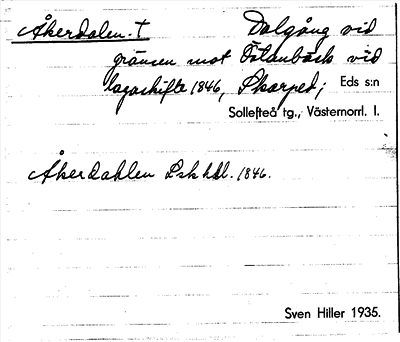 Åkerdalen. † Dalgång vid
gränsen mot Tölanbäck vid
lagaskifte 1846, Skarped; Eds s:n
Sollefteå tg., Västernorrl. l.
Åkerdahlen Lskhdl. 1846.
Sven Hiller 1935.